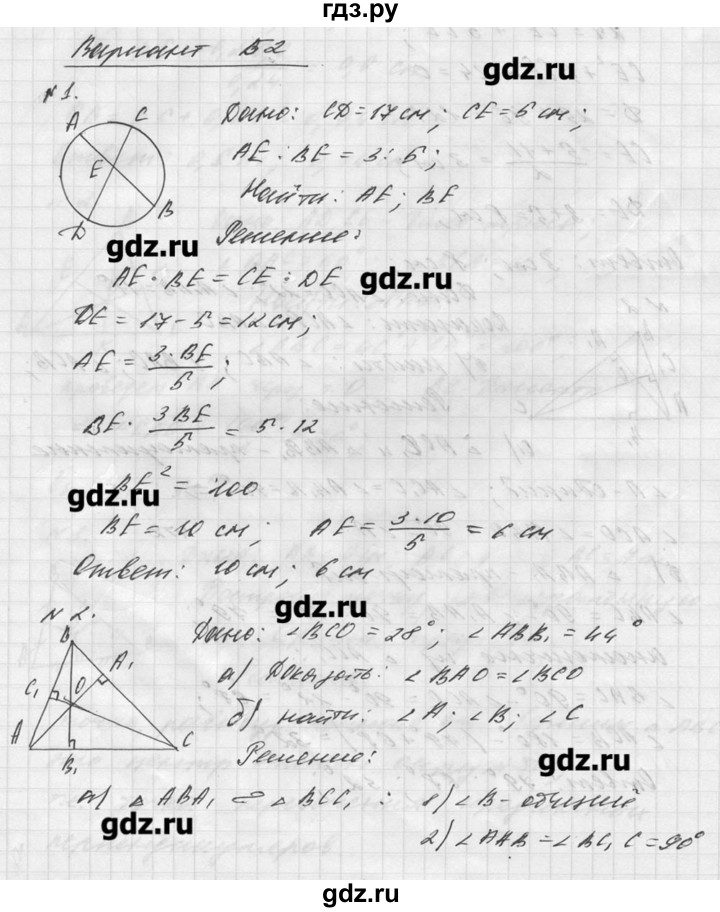 гдз.ру
Вариант Б2
gdz.ru
№ 1.
A C E B D
Дано: CD = 17 см; CE = 5 см;
AE : BE = 3 : 5;
Найти: AE; BE
gdz.ru
Решение:
gdz.ru
AE · BE = CE : DE
DE = 17 - 5 = 12 см;
AE = 3 · BE / 5;
BE · 3 BE / 5 = 5 · 12
gdz.ru
BE² = 100
BE = 10 см; AE = 3 · 10 / 5 = 6 см
Ответ: 10 см; 6 см
gdz.ru
№ 2.
B A₁ C₁ O A B₁ C
Дано: ∠BCO = 28°; ∠ABB₁ = 44°
а) Доказать: ∠BAO = ∠BCO
б) найти: ∠A; ∠B; ∠C
gdz.ru
Решение:
а) △ABA₁ ∽ △BCC₁ : 1) ∠B - общий
gdz.ru
2) ∠AAB = ∠BC₁C = 90°
gdz.ru